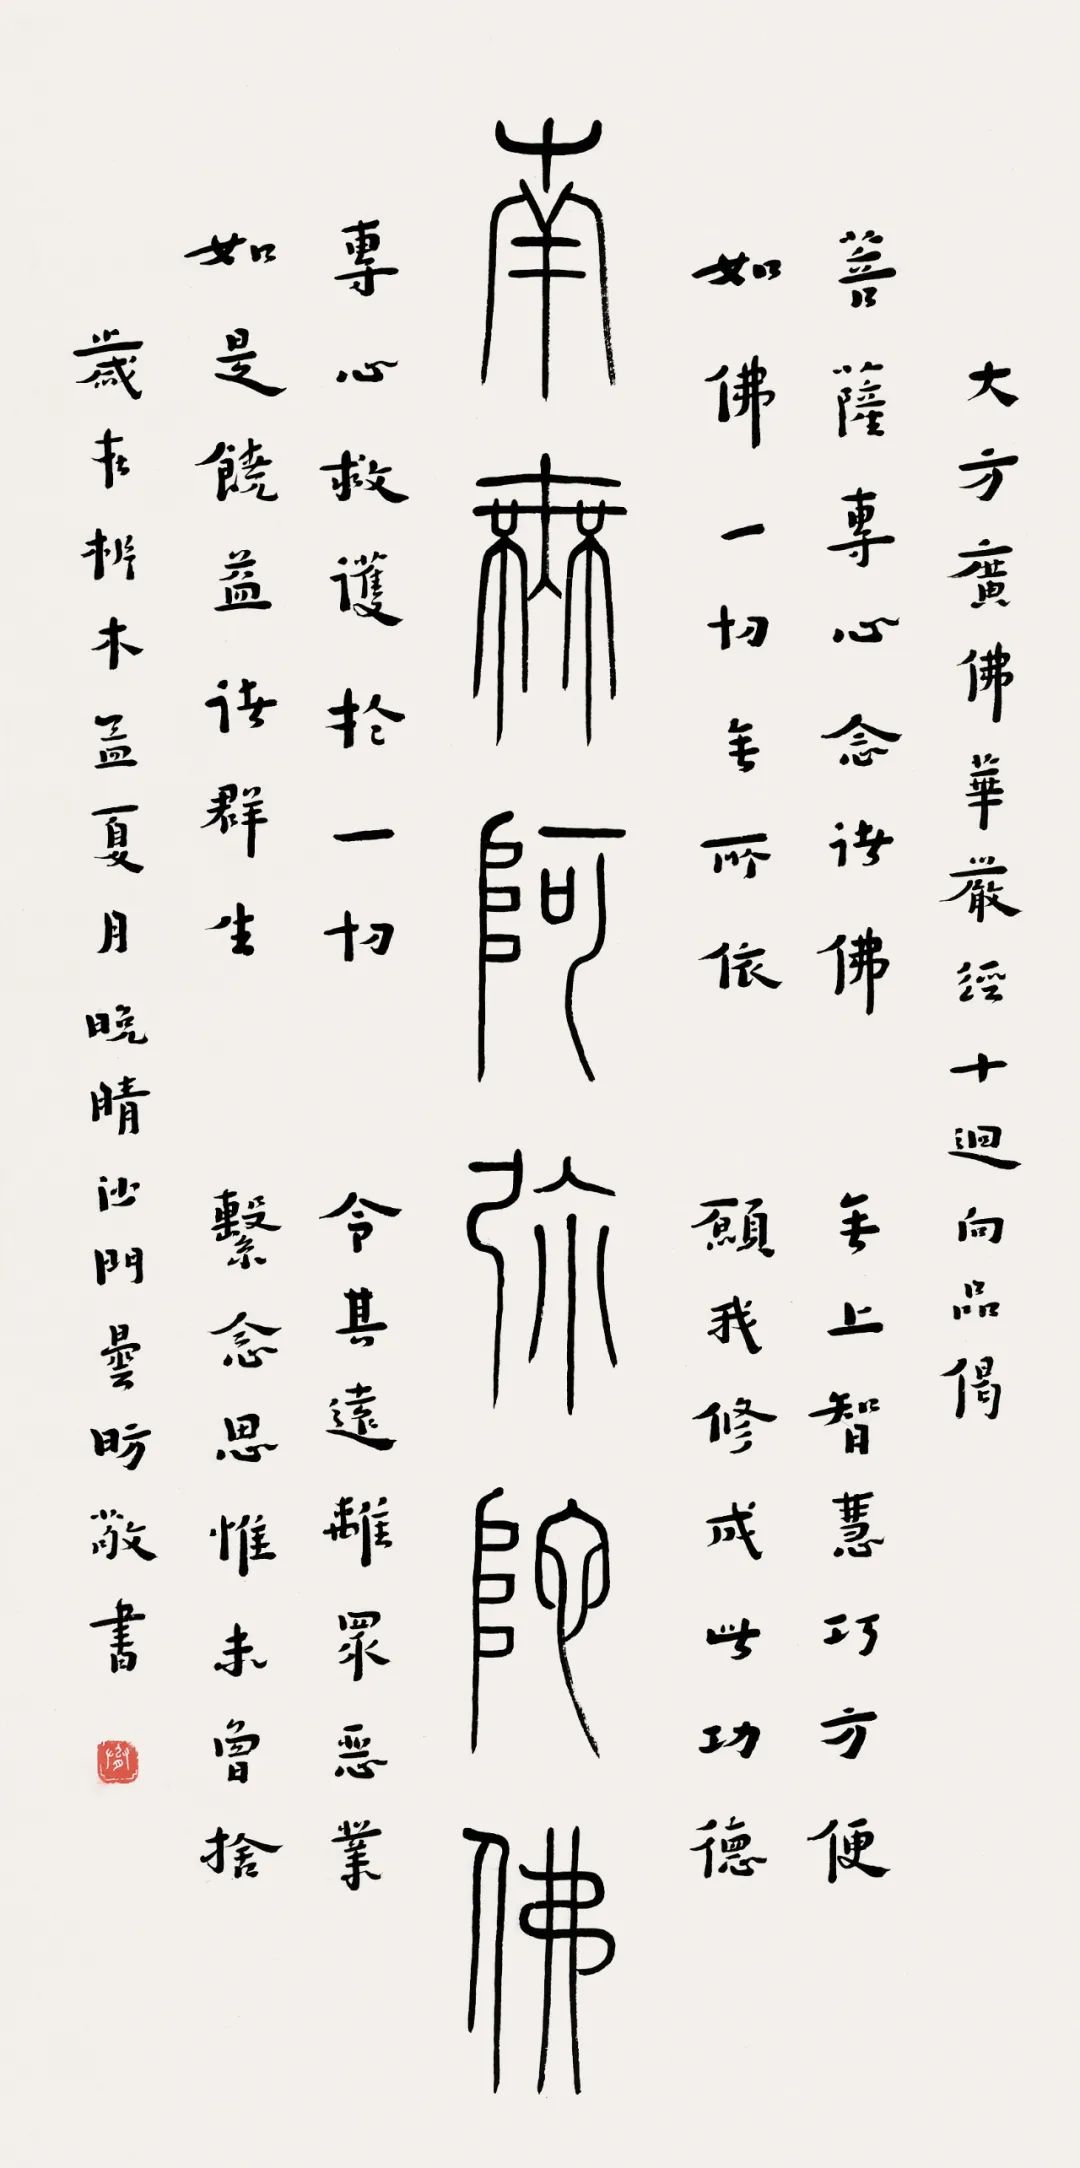 大方廣佛華嚴經十迴向品偈
菩薩專心念諸佛　无上智慧巧方便
如佛一切无所依　願我修成此功德
南無阿弥陀佛
專心救護於一切　令其遠離眾惡業
如是饒益諸群生　繫念思惟未曾捨
歲在析木孟夏月晚晴沙門曇昉敬書